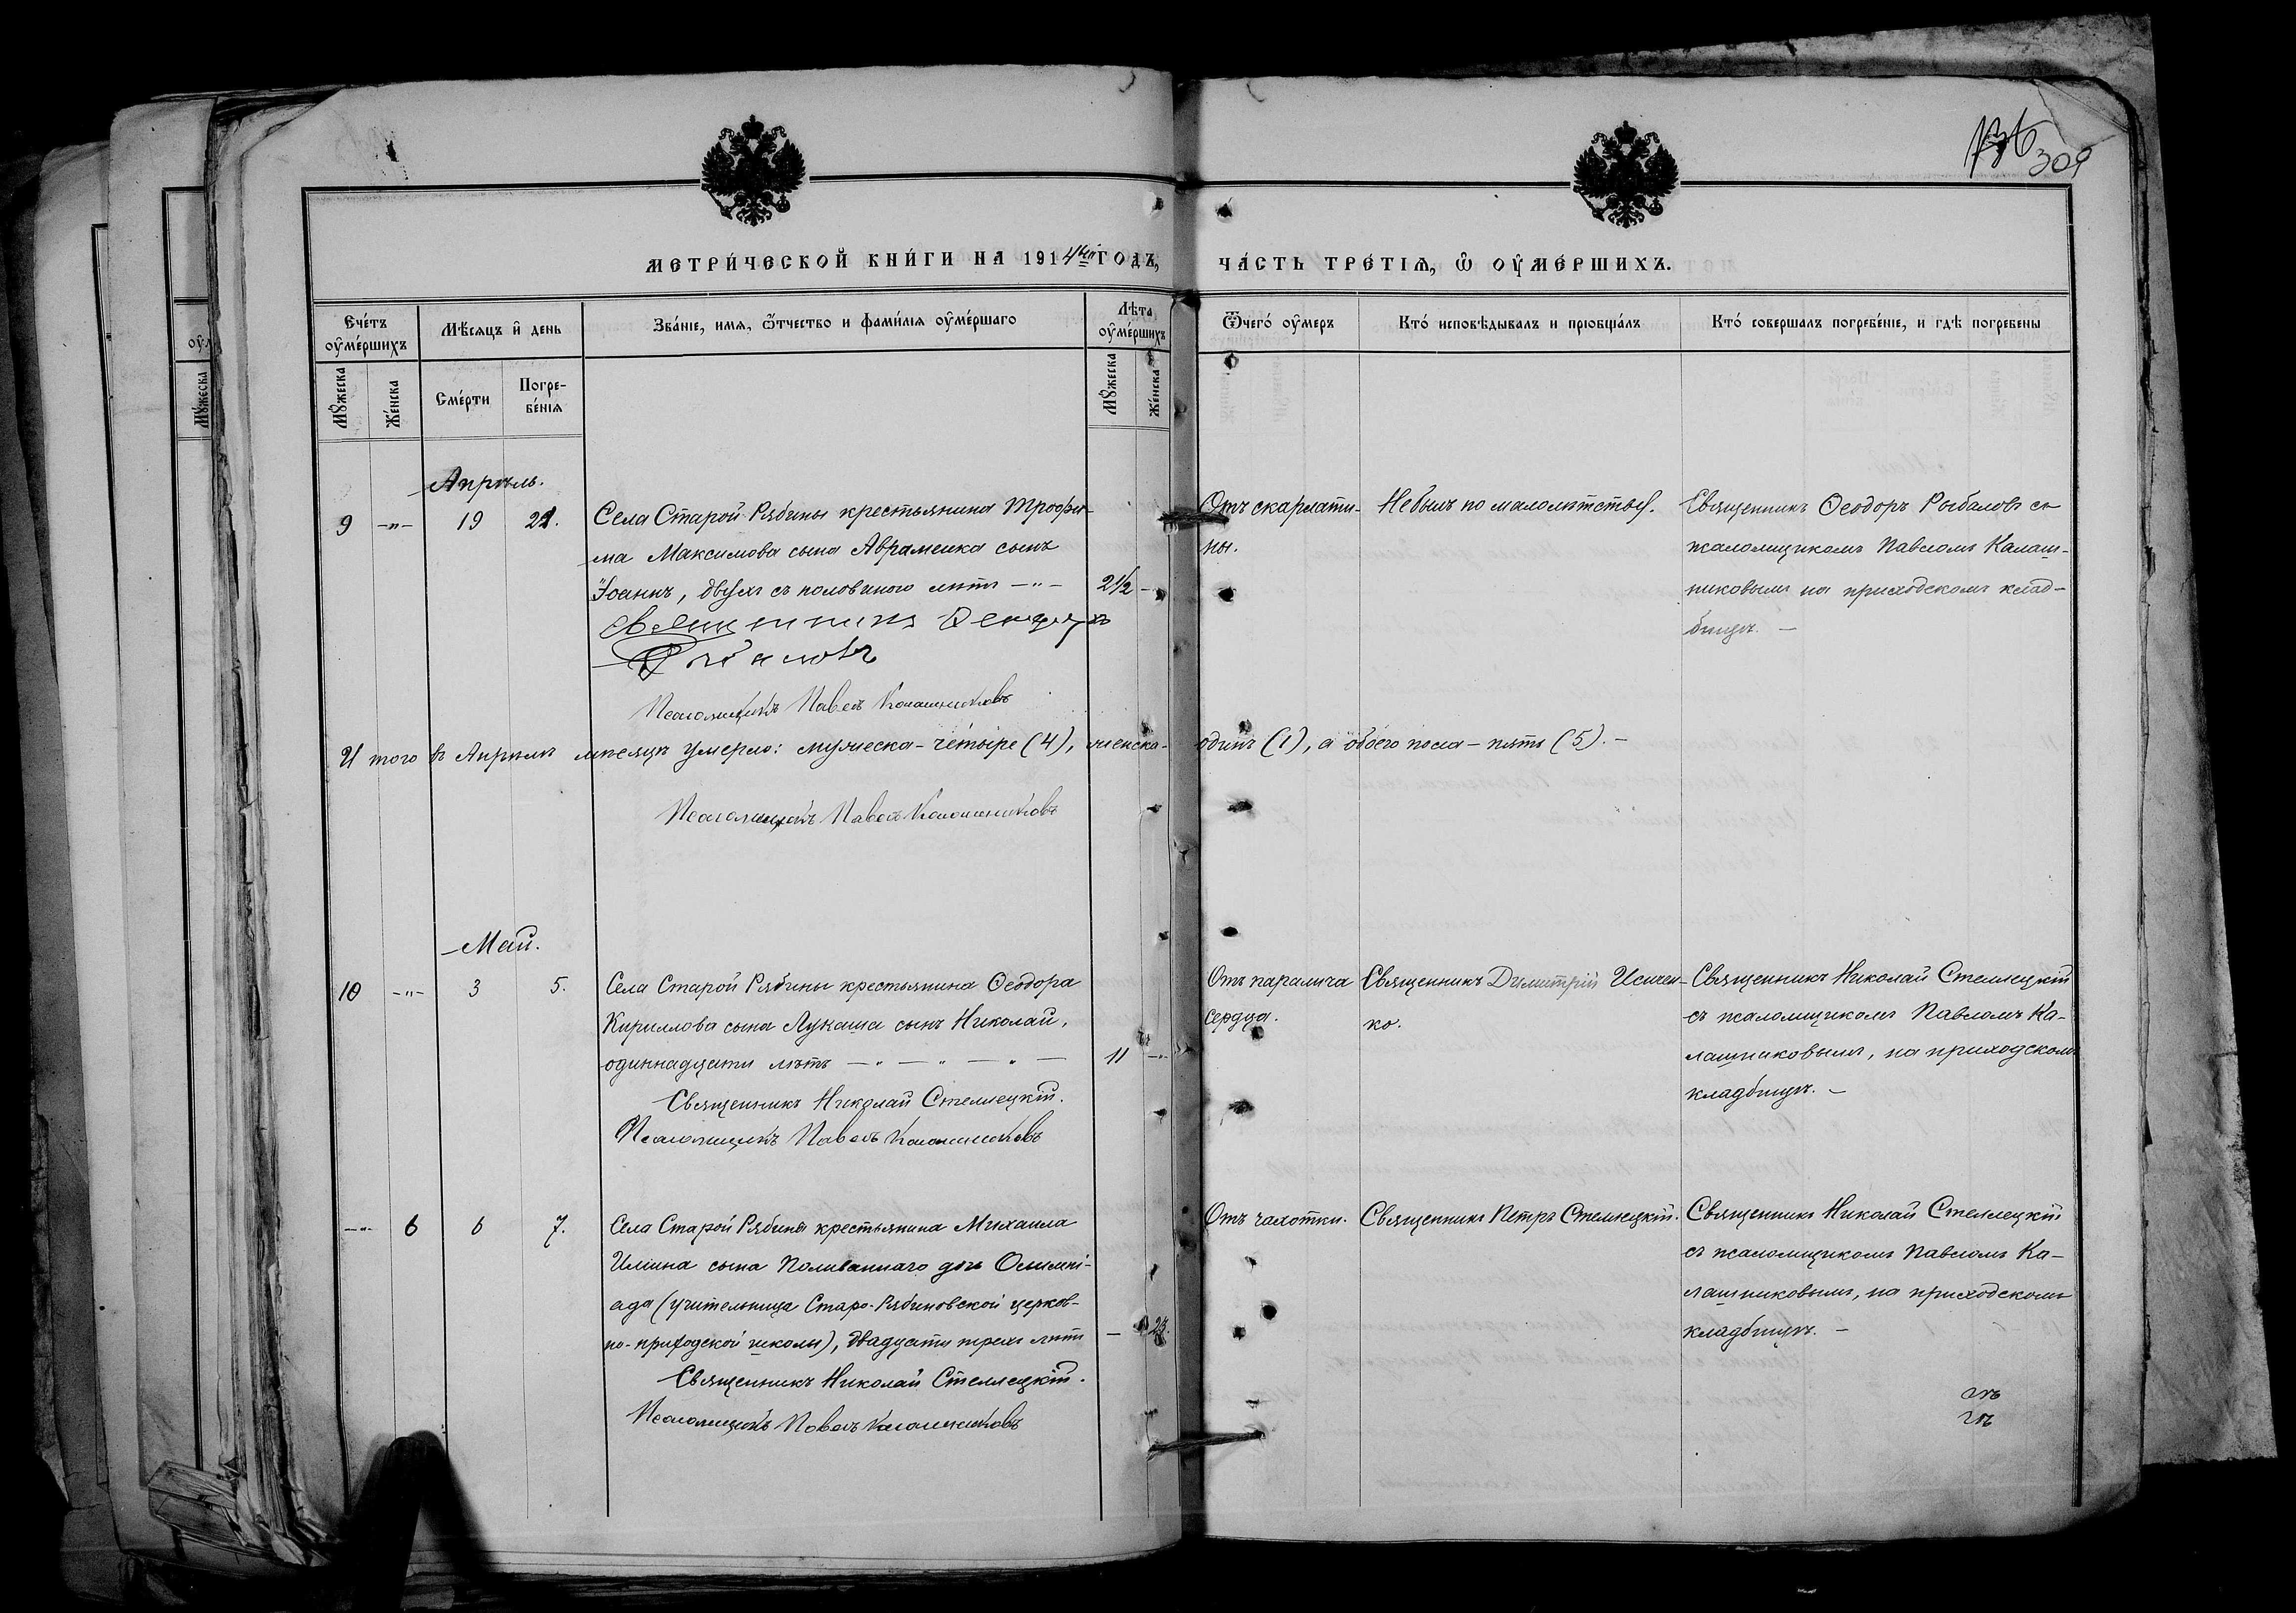 136
309
МЕТРИ́ЧЕСКОЙ КНИ́ГИ НА 1914ый ГОДЪ, ЧА́СТЬ ТРЕ́ТІѦ, Ѽ ОУ҆МЕ́РШИХЪ.
Счéтъ оу҆мéршихъ
Мѣ́сяцъ и҆ день
Звáніе, имѧ, ѻ҆́тчество и фамилія оу҆мéршаго
Лѣта оу҆мéршихъ
Ѿчегó оу҆меръ
Ктó исповѣ́дывалъ и пріобщáлъ
Ктó совершалъ погребéніе, и гдѣ погребены
Мꙋ́жеска
Жéнска
Смéрти
Погре-
бéнія
Мꙋ́жеска
Жéнска
Апрѣль.
9 -„- 19 21. Села Старой Рябины крестьянина Трофи-
ма Максимова сына Авраменка сынъ
Іоаннъ, двухъ съ половиною лѣтъ -„- 2½ -
Священникъ Ѳеодоръ
Рыбаловъ
Псаломщикъ Павелъ Калашниковъ
Отъ скарлати-
ны.
Небылъ по малолѣтству.
Священникъ Ѳеодоръ Рыбаловъ съ
псаломщикомъ Павломъ Калаш-
никовымъ на приходскомъ клад-
бищѣ. -
И того въ Апрѣлѣ мѣсяцѣ умерло: мужеска - четыре (4), женска - одинъ (1), а обоего пола - пять (5). -
Псаломщикъ Павелъ Калашниковъ
Май.
10 -„- 3 5. Села Старой Рябины крестьянина Ѳеодора
Кириллова сына Лукаша сынъ Николай,
одиннадцати лѣтъ - „ - „ - „ - 11 -„-
Священникъ Николай Стеллецкій.
Псаломщикъ Павелъ Калашниковъ
Отъ паралича
сердца.
Священникъ Димитрій
ко.
Священникъ Николай Стеллецкій
съ псаломщикомъ Павломъ Ка-
лашниковымъ, на приходскомъ
кладбищѣ. -
-„- 6 6 7. Села Старой Рябины крестьянина Михаила
Иліина сына Поливаннаго дочь Олимпі-
ада (учительница Старо-Рябиновской церков-
но-приходской школы), двадцати трехъ лѣтъ - 23.
Священникъ Николай Стеллецкій.
Псаломщикъ Павелъ Калашниковъ
Отъ чахотки.
Священникъ Петръ Стеллецкій.
Священникъ Николай Стеллецкій
съ псаломщикомъ Павломъ Ка-
лашниковымъ, на приходскомъ
кладбищѣ. -